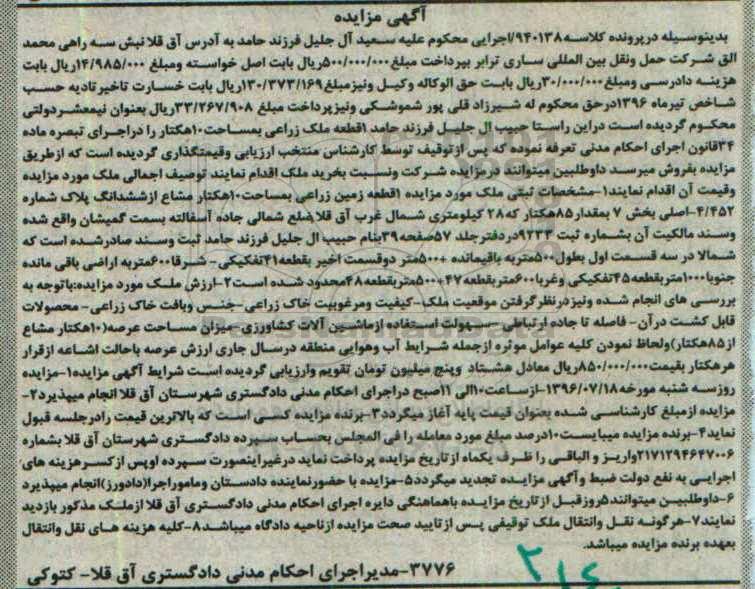 آگهی مزایده
بدینوسیله در پرونده کلاسه ۹۴۰۱۳۸/اجرایی محکوم علیه سعید آل جلیل فرزند حامد به آدرس آق قلا نبش سه راهی محمد
الق شرکت حمل ونقل بین المللی ساری ترابر بپرداخت مبلغ ۵۰۰/۰۰۰/۰۰۰ریال بابت اصل خواسته ومبلغ ۱۴/۹۸۵/۰۰۰ریال بابت
هزینه دادرسی ومبلغ ۳۰/۰۰۰/۰۰۰ریال بابت حق الوکاله وکیل ونیزمبلغ ۱۳۰/۳۷۳/۱۶۹ریال بابت خسارت تاخیرتادیه حسب
شاخص تیرماه ۱۳۹۶درحق محکوم له شیرزاد قلی پور شموشکی ونیزپرداخت مبلغ ۳۳/۲۶۷/۹۰۸ریال بعنوان نیمعشردولتی
محکوم گردیده است دراین راستا حبیب ال جلیل فرزند حامد ۱قطعه ملک زراعی بمساحت ۱۰هکتار را دراجرای تبصره ماده
۳۴قانون اجرای احکام مدنی تعرفه نموده که پس ازتوقیف توسط کارشناس منتخب ارزیابی وقیمتگذاری گردیده است که ازطریق
مزایده بفروش میرسد داوطلبین میتوانند درمزایده شرکت ونسبت بخرید ملک اقدام نمایند توصیف اجمالی ملک مورد مزایده
وقیمت آن اقدام نمایند۱-مشخصات ثبتی ملک مورد مزایده ۱قطعه زمین زراعی بمساحت ۱۰هکتار مشاع ازششدانگ پلاک شماره
۴/۴۵۲-اصلی بخش ۷ بمقدار۸۵هکتار که ۲۸ کیلومتری شمال غرب آق قلا ضلع شمالی جاده آسفالته بسمت گمیشان واقع شده
وسند مالکیت آن بشماره ثبت ۹۲۳۳دردفترجلد ۵۷صفحه ۳۹بنام حبیب ال جلیل فرزند حامد ثبت وسند صادرشده است که
شمالا در سه قسمت اول بطول ۵۰۰متربه باقیمانده +۵۰۰متر دوقسمت اخیر بقطعه ۴۱تفکیکی- شرقا ۶۰۰متربه اراضی باقی مانده
جنوبا ۱۰۰۰متربقطعه ۴۵تفکیکی وغربا ۶۰۰متربقطعه ۴۷+۵۰۰متربقطعه ۴۸محدود شده است۲-ارزش ملک مورد مزایده:باتوجه به
بررسی های انجام شده ونیزدرنظرگرفتن موقعیت ملک-کیفیت ومرغوبیت خاک زراعی-جنس وبافت خاک زراعی- محصولات
قابل کشت درآن- فاصله تا جاده ارتباطی -سهولت استفاده ازماشین آلات کشاورزی-میزان مساحت عرصه(۱۰هکتار مشاع
از۸۵هکتار)ولحاظ نمودن کلیه عوامل موثره ازجمله شرایط آب وهوایی منطقه درسال جاری ارزش عرصه باحالت اشاعه ازقرار
هرهکتار بقیمت ۸۵۰/۰۰۰/۰۰۰ریال معادل هشتاد وپنج میلیون تومان تقویم وارزیابی گردیده است شرایط آگهی مزایده۱-مزایده
روزسه شنبه مورخه ۱۳۹۶/۰۷/۱۸-ازساعت ۱۰الی ۱۱صبح دراجرای احکام مدنی دادگستری شهرستان آق قلا انجام میپذیرد۲-
مزایده ازمبلغ کارشناسی شده بعنوان قیمت پایه آغاز میگردد۳-برنده مزایده کسی است که بالاترین قیمت رادرجلسه قبول
نماید۴-برنده مزایده میبایست ۱۰درصد مبلغ مورد معامله را فی المجلس بحساب سپرده دادگستری شهرستان آق قلا بشماره
۲۱۷۱۲۹۴۶۴۷۰۰۶واریز و الباقی را ظرف یکماه ازتاریخ مزایده پرداخت نماید درغیراینصورت سپرده اوپس ازکسرهزینه های
اجرایی به نفع دولت ضبط وآگهی مزایده تجدید میگردد۵-مزایده با حضورنماینده دادستان وماموراجرا(دادورز)انجام میپذیرد
۶-داوطلبین میتوانند ۵روزقبل ازتاریخ مزایده باهماهنگی دایره اجرای احکام مدنی دادگستری آق قلا ازملک مذکور بازدید
نمایند۷-هرگونه نقل وانتقال ملک توقیفی پس ازتایید صحت مزایده ازناحیه دادگاه میباشد۸-کلیه هزینه های نقل وانتقال
بعهده برنده مزایده میباشد.
۳۷۷۶-مدیراجرای احکام مدنی دادگستری آق قلا- کتوکی